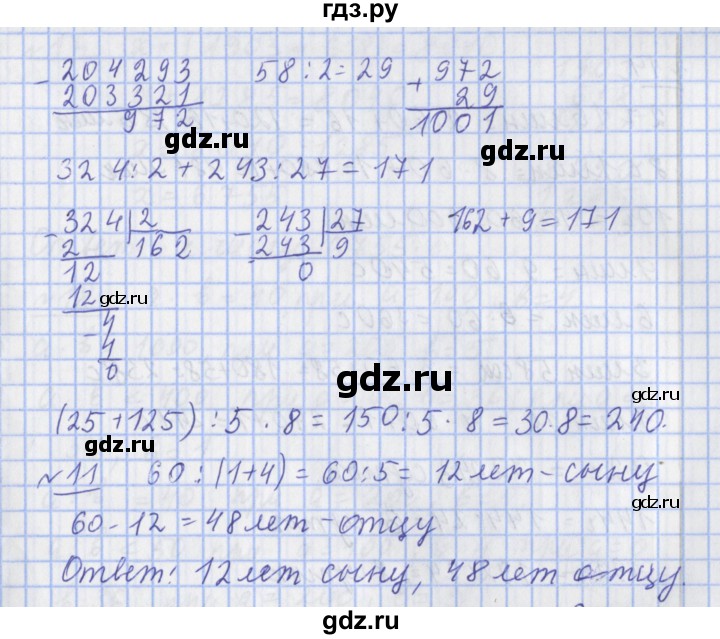 гдз.ру
- 204293   58 : 2 = 29   + 972
203321   29
972   1001
324 : 2 + 243 : 27 = 171
- 324 | 2   - 243 | 27   162 + 9 = 171
2   162   243   9
12   0
12
- 4
4
0
(25 + 125) : 5 · 8 = 150 : 5 · 8 = 30 · 8 = 240.
№ 11   60 : (1+4) = 60 : 5 = 12 лет - сыну
60 - 12 = 48 лет - отцу
Ответ: 12 лет сыну, 48 лет отцу.
gdz.ru
gdz.ru
gdz.ru
gdz.ru
gdz.ru
gdz.ru